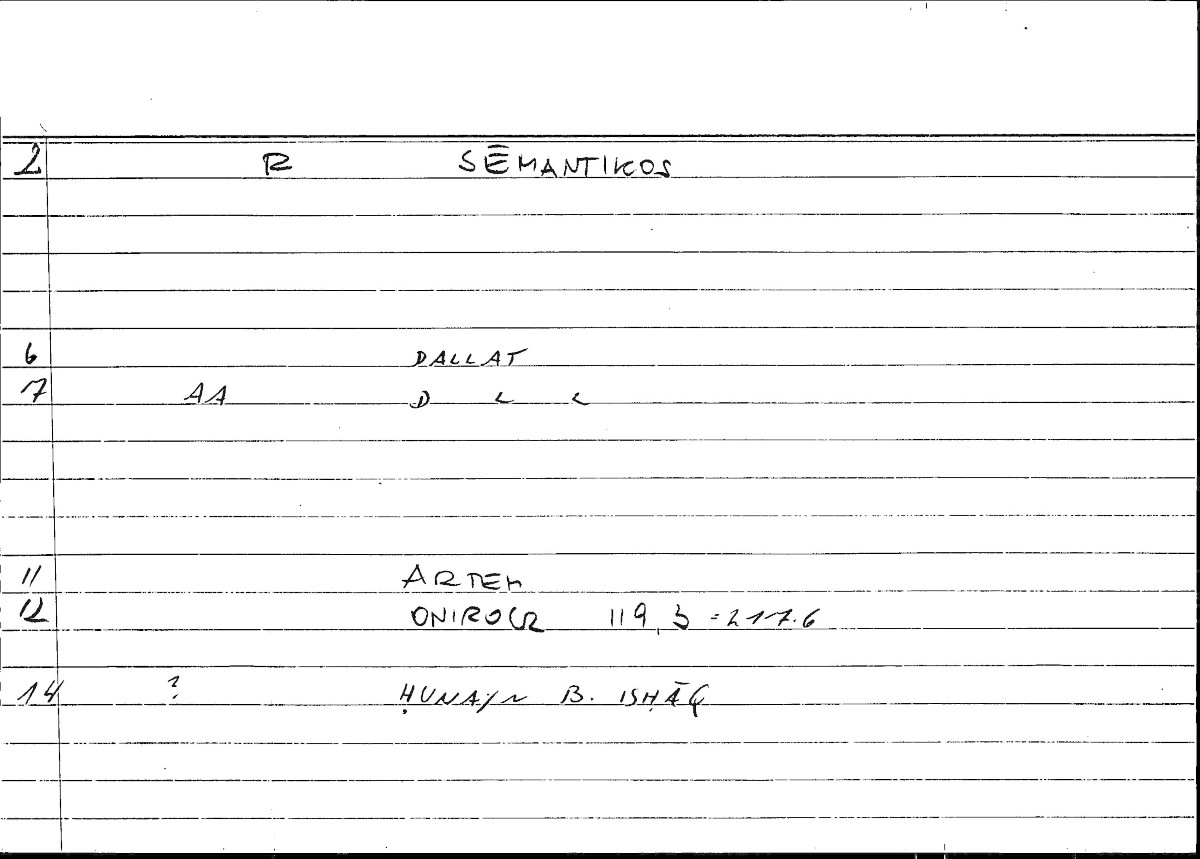 2 R SĒMANTIKOS
6 DALLAT
7 AA D L L
11 ARTEM
12 ONIROCR 119,3 = 217.6
14 ? ḤUNAYN B. ISḤĀQ